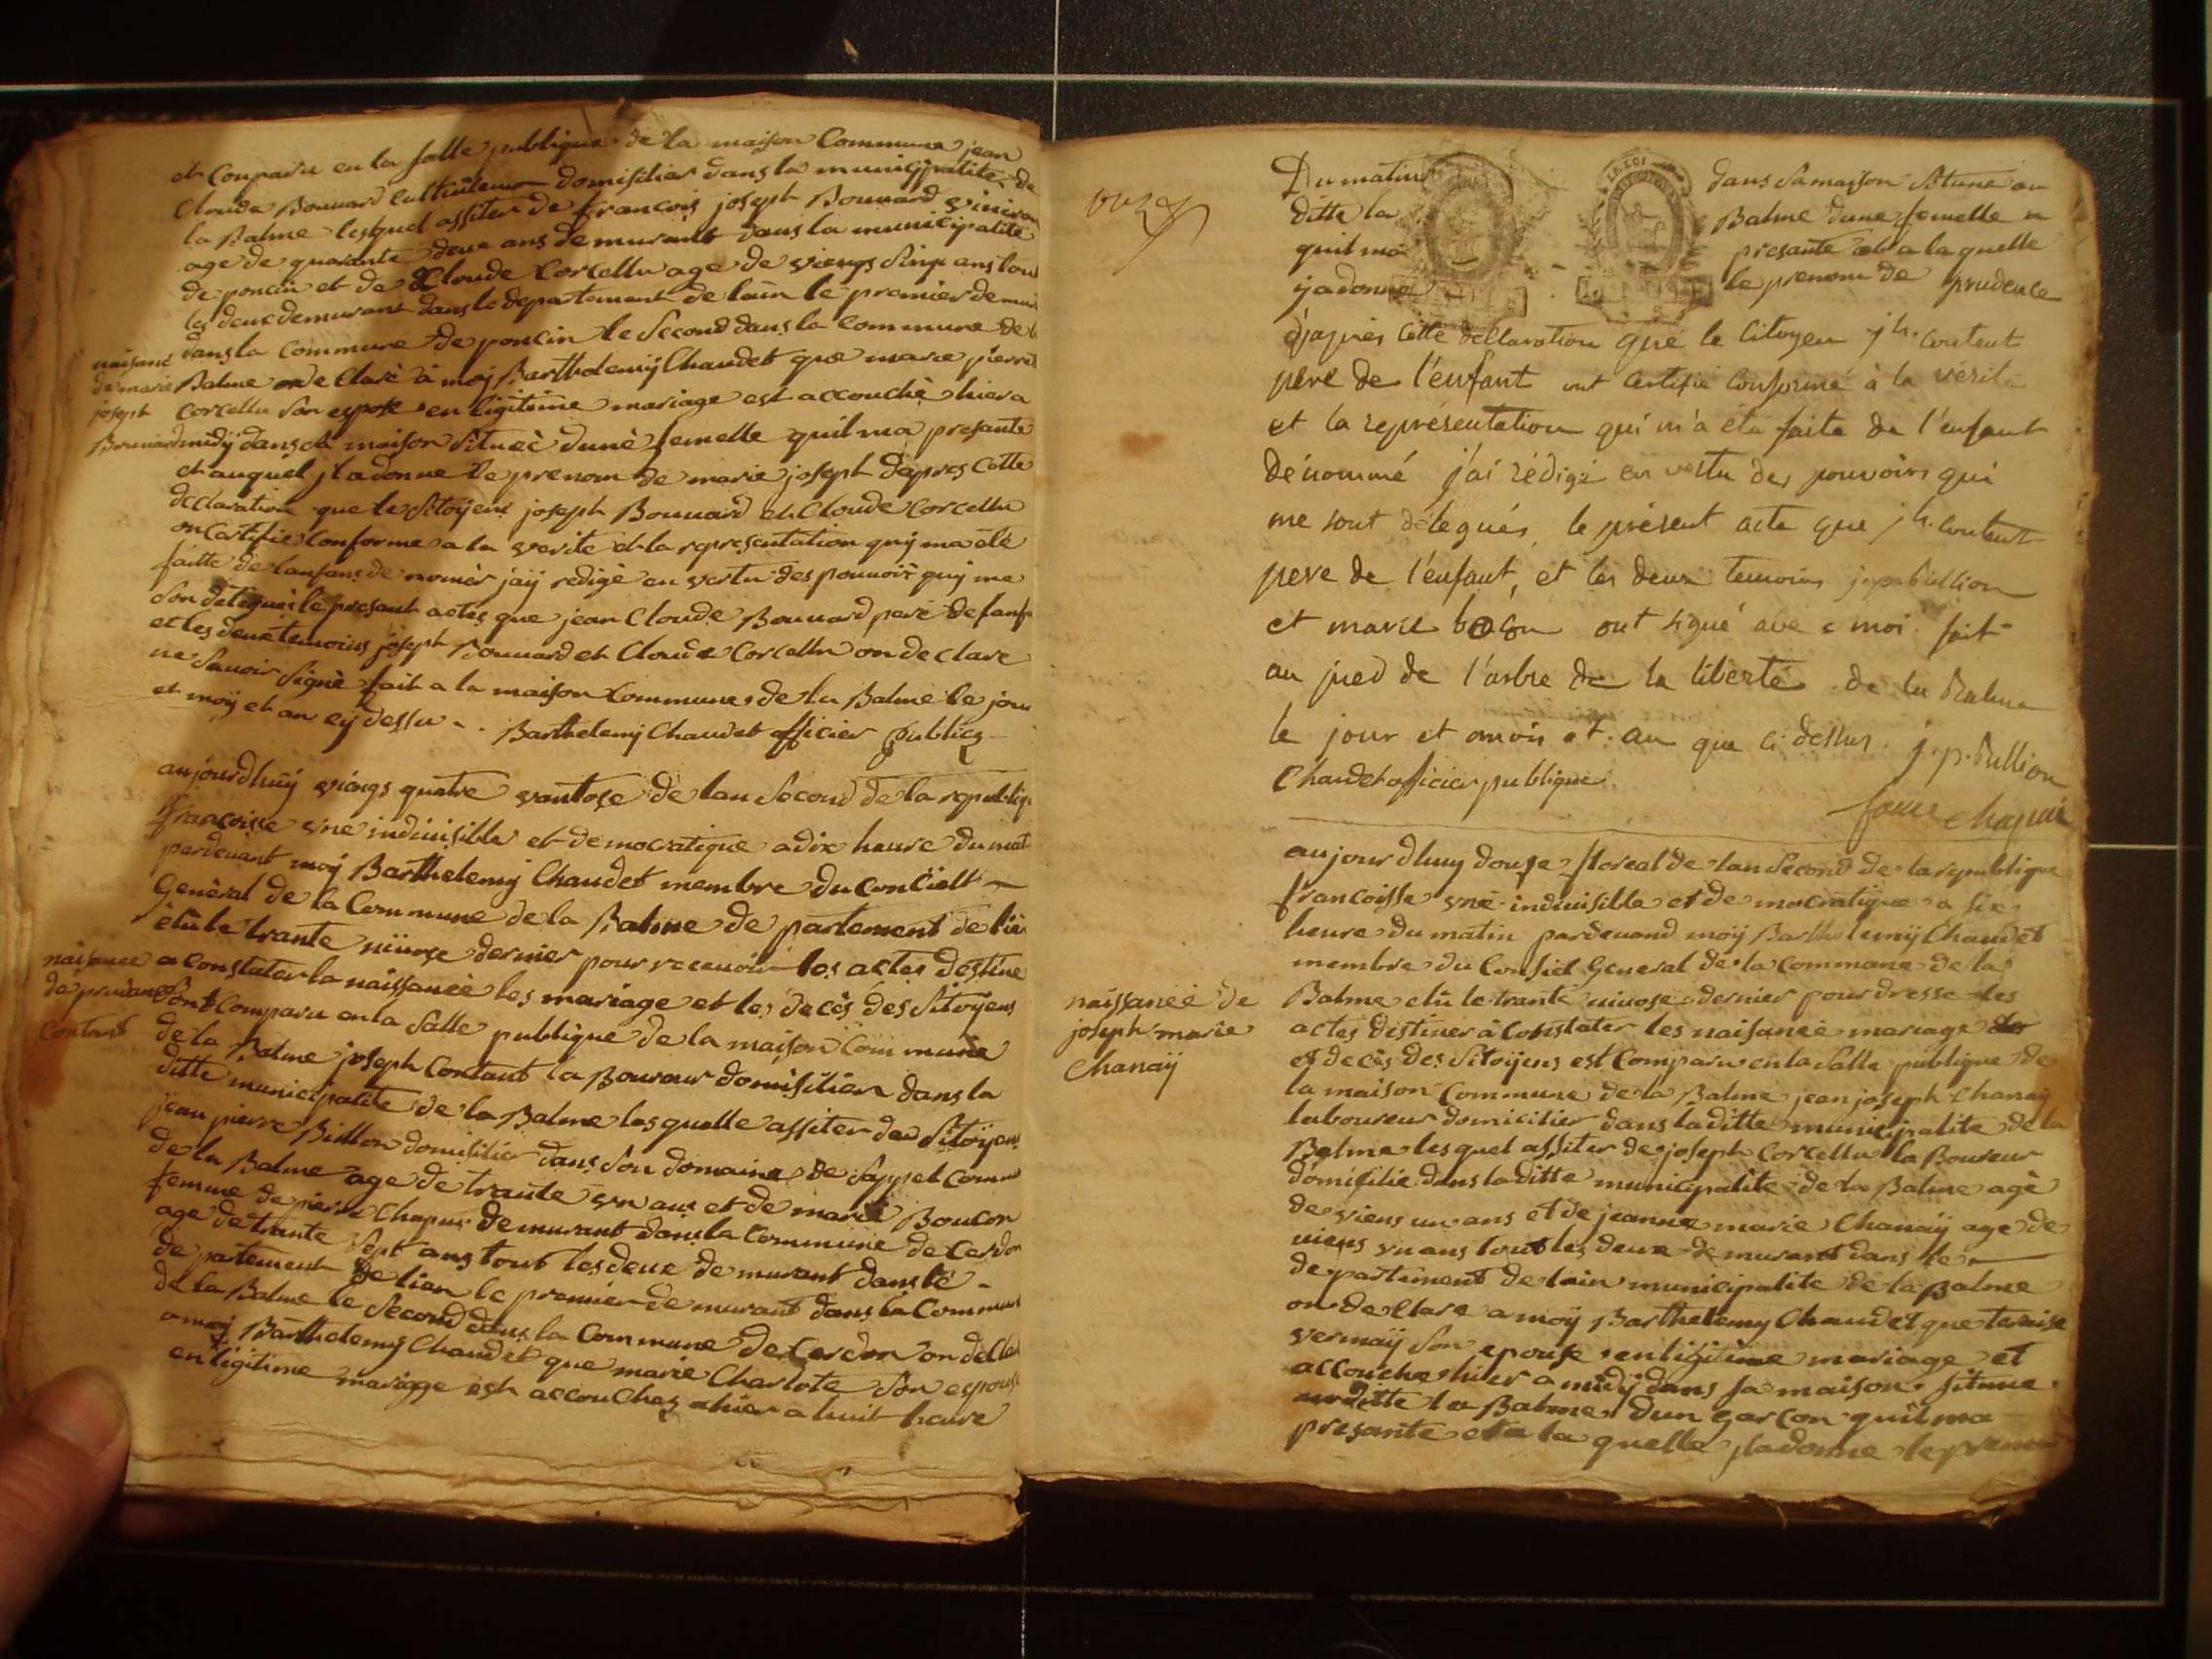 et Comparu en la salle publique de la maison Commune jean
Claude Bouvard Cultiuteur domisilier dans la municipalite de
la Balme lesquel assiter de francois joseph Bouvard
age de quarante deux ans demurant dans la municipalite
de poncin et de Claude Corcellu age de viengs sinq ans tout
les deux demurant dans le departement de lain le premier
dans la Commune de poncin le Second dans la Commune de
naisance
de marie
joseph
Bouvard
Balme on de Claré a moy Barthelemy Chaudet que marie pierre
Corcellu son espose en ligitime mariage est accouché hier a
midy dans sa maison situeè dunè femelle quil ma presante
et auquel jl a donne le prenom de marie joseph dapres cette
declaration que le Sitoyens joseph Bouvard et Claude Corcellu
on Certifie Conforme a la verite et la representation quy ma été
faitte de lanfans de nomèr jaÿ redigè en vertu des pouvoir quy me
son deleguès le presant actes que jean Claude Bouvard perè de lanf
et les deux temoins joseph Bouvard et Claude Corcellu on declare
ne savoir signè fait a la maison Commune de la Balme le jour
et moÿ et an cy dessu . Barthelemy Chaudet officier publicq
aujourdhuÿ viengs quatre vantose de lan Second de la republiq
francoisse vne indiuisible et democratique a dix heure du mat
pardeuant moy Barthelemy Chaudet membre du Conciell
General de la Commune de la Balme de partement de
élu le trante niuose dernier pour receuoir les actes destine
naisance
de prudance
Contant
a constater la naissancè les mariage et les decès des Sitoyens
sont Comparu en la Salle publique de la maison Commune
de la Balme joseph Contant la Boureur domisilier dans la
ditte municipalite de la Balme lesquelle assiter des Sitoyens
jean pierre Billion domisilie dans son domaine de
de la Balme age de trante vn ans et de marie Boucon
femme de pierre Chapui demurant dans la Commune de Cerdon
age de trante sept ans tout les deux demurant dans le
de partement de lian le premier demurant dans la Commune
de la Balme le Second dans la Commune de Cerdon on declaré
a moy Barthelemy Chaudet que marie Charlote son espouse
en ligitime mariage est accouchez ahier a huit heure
onze
Du matin dans sa maison situne au
ditte la Balme dune femelle
quil ma presante et a la quelle
y a donné le prenom de prudence
d'aprés cette déclaration que le Citoyen jh. contant
pere de l'enfant ont certifié conforme à la vérité
et la représentation qui m'a été faite de l'enfant
dénommé j'ai rédigé en vertu des pouvoirs qui
me sont délegués, le présent acte que jh. contant
pere de l'enfant, et les deux temoins
et marie ont signé avec moi. fait
au pied de l'arbre de la liberté de la Balme
le jour et mois et an que ci dessus. j. p. Billion
Chaudet officier publique.
aujourdhuy douse floreal de lan Second de la republique
francoisse vnè indiuisible et democratique a six
heure du matin pardeuand moÿ Barthelemÿ Chaudet
membre du Consiel General de la Commune de la
naissancè de
joseph marie
Chanaÿ
Balme elü le trante niuose dernier pour dresse les
actes destiner à Constater les naisancè mariage
et decès des Sitoÿens est Comparu en la Salle publique de
la maison Commune de la Balme jean joseph Chanay
laboureur domicilier dans la ditte municipalite de la
Balme lesquel assiter de joseph Corcellu la Boureur
domisilie dans la ditte municipalite de la Balme agè
de viens un ans et de jeanne marie Chanaÿ age de
viens vn ans tout les deux demurant dans le
departement de lain municipalite de la Balme
on de Clare a moÿ Barthelemy Chaudet que
vermaÿ son epouse en ligitime mariage et
accouche hier a midÿ dans sa maison situne
ditte la Balme dun garcon quil ma
presante et a la quelle jl a donne le prenom